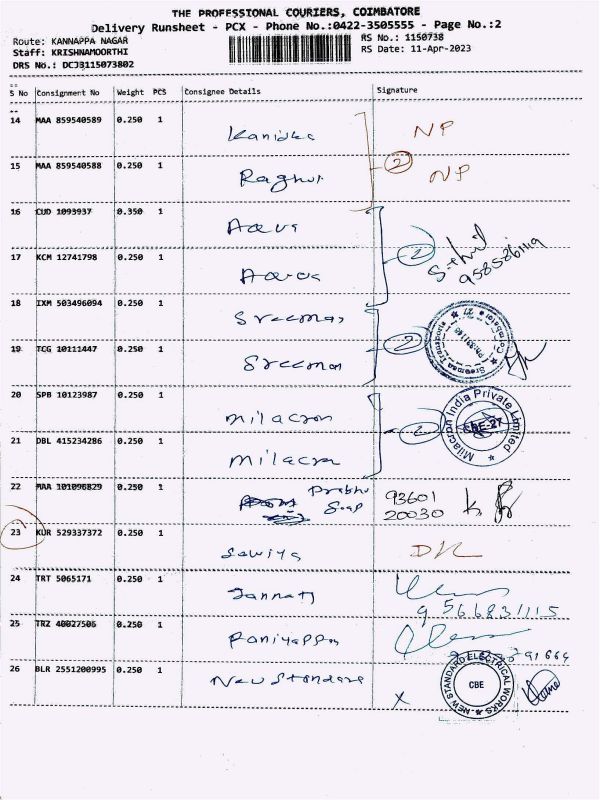 THE PROFESSIONAL COURIERS, COIMBATORE
Delivery Runsheet - PCX - Phone No.:0422-3505555 - Page No.:2
Route: KANNAPPA NAGAR RS No.: 1150738
Staff: KRISHNAMOORTHI RS Date: 11-Apr-2023
DRS No.: DCJB115073802
S No Consignment No Weight PCS Consignee Details Signature
14 MAA 859540589 0.250 1 NP
15 MAA 859540588 0.250 1 Raghur 2 NP
16 CUD 1093937 0.350 1 Aava
17 KCM 12741798 0.250 1 2
18 IXM 503496094 0.250 1 Sreeman
19 TCG 10111447 0.250 1 Sreeman 2 Sreeman Transports Coimbatore
20 SPB 10123987 0.250 1 milacron
21 DBL 415234286 0.250 1 milacron 2 Milacron India Private Limited CBE-27
22 MAA 101096829 0.250 1 Prabhu Soap 93601 20030
23 KUR 529337372 0.250 1
24 TRT 5065171 0.250 1 9566831115
25 TRZ 40027506 0.250 1
26 BLR 2551200995 0.250 1 New Standard X NEW STANDARD ELECTRICAL WORKS CBE